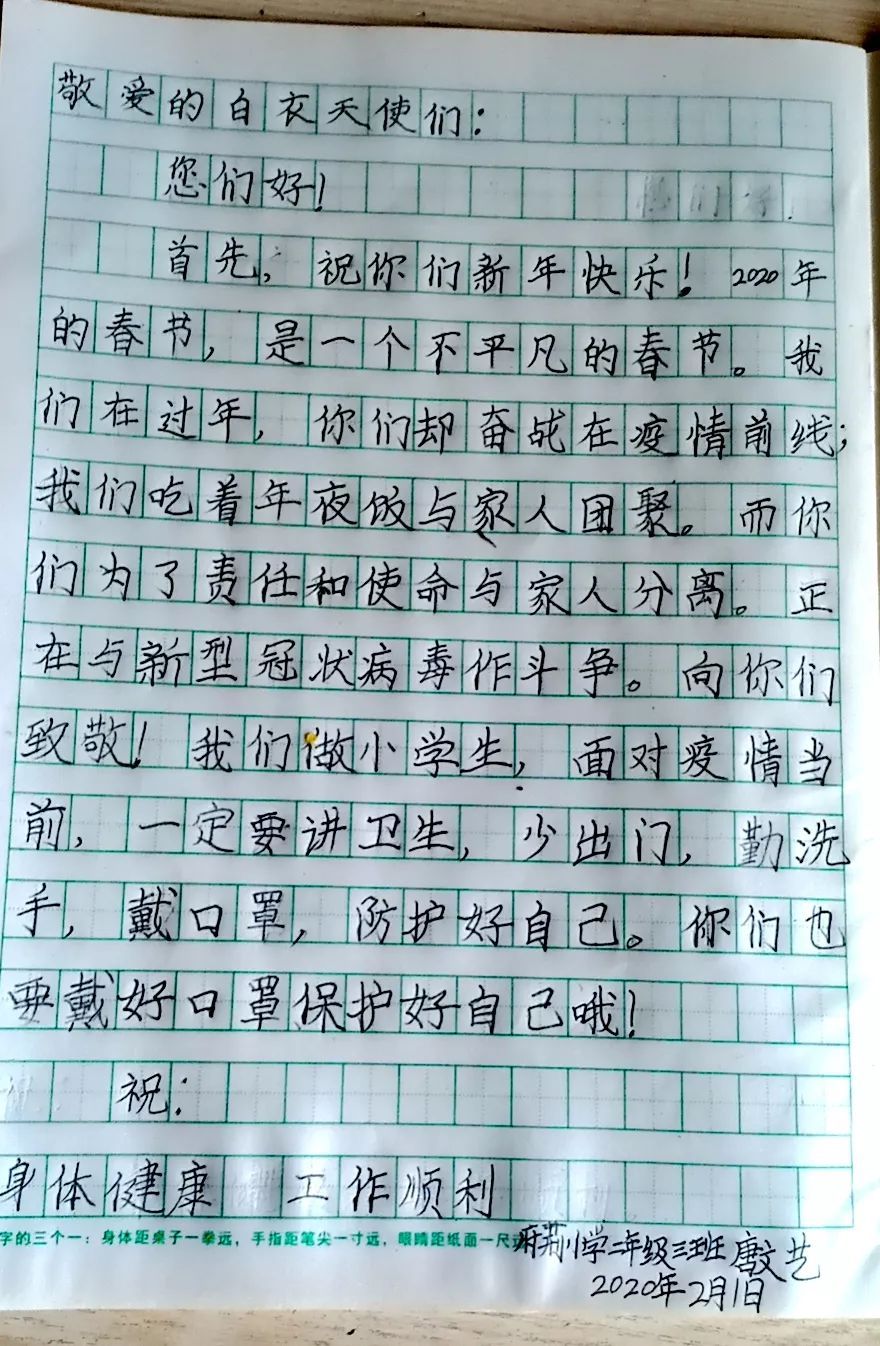 敬爱的白衣天使们：
您们好！
首先，祝你们新年快乐！2020年
的春节，是一个不平凡的春节。我
们在过年，你们却奋战在疫情前线；
我们吃着年夜饭与家人团聚。而你
们为了责任和使命与家人分离。正
在与新型冠状病毒作斗争。向你们
致敬！我们做小学生，面对疫情当
前，一定要讲卫生，少出门，勤洗
手，戴口罩，防护好自己。你们也
要戴好口罩保护好自己哦！
祝：
身体健康 工作顺利
字的三个一：身体距桌子一拳远，手指距笔尖一寸远，眼睛距纸面一尺
小学二年级三班唐文艺
2020年2月1日